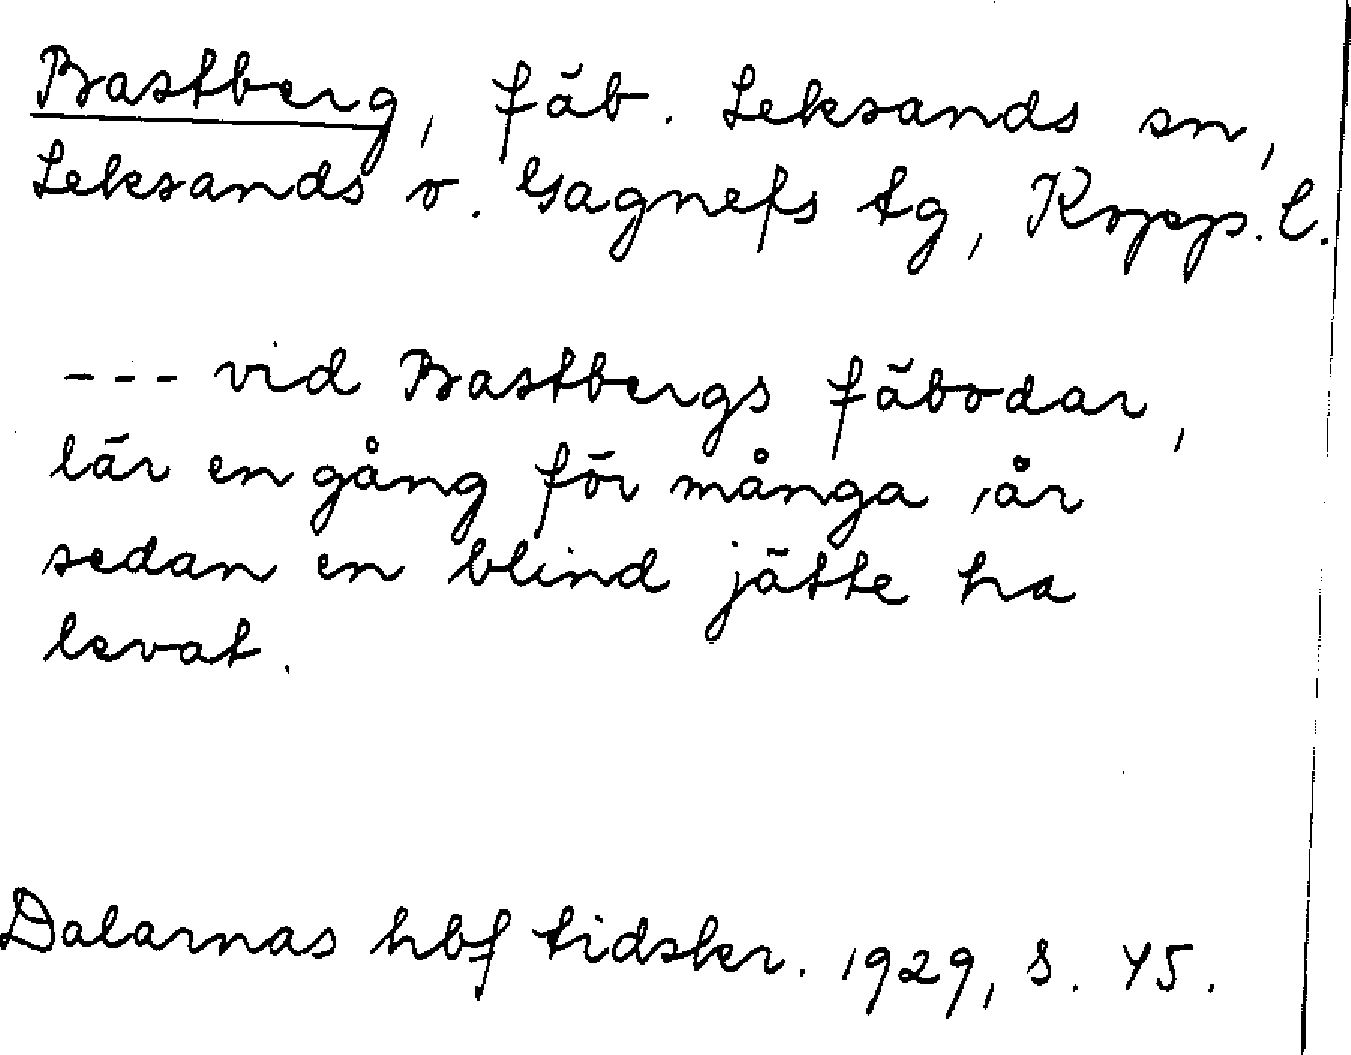 Bastberg, fäb. Leksands sn,
Leksands o. Gagnefs tg, Kopp. l.
--- vid Bastbergs fäbodar,
lär en gång för många år
sedan en blind jätte ha
levat.
Dalarnas hbf tidskr. 1929, s. 45.